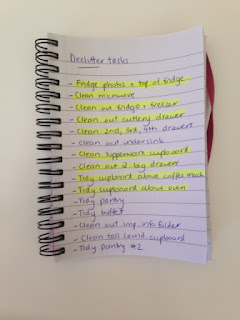 Declutter tasks
- Fridge photos + top of fridge
- Clean microwave
- Clean out fridge + freezer
- Clean out cutlery drawer
- Clean 2nd, 3rd, 4th drawers
- Clean out under sink
- Clean tupperware cupboard
- Clean out 2 big drawer
- Tidy cupboard above coffee mach
- Tidy cupboard above oven
- Tidy pantry
- Tidy buffet
- Clean out imp. info folder
- Clean tall cupboard
- Tidy pantry #2